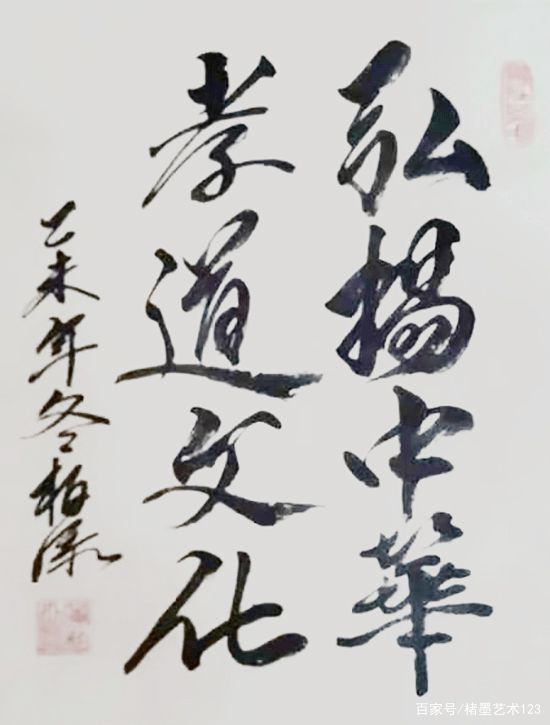 弘揚中華
孝道文化
乙未年冬柏
百家号/楮墨艺术123